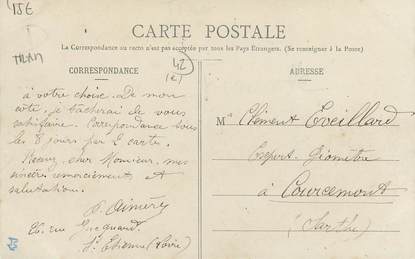 45€
TRAM
42
(2)
CARTE POSTALE
La Correspondance au recto n'est pas acceptée par tous les Pays Étrangers. (Se renseigner à la Poste)
CORRESPONDANCE
ADRESSE
à votre choix. De mon
côté, je tacherai de vous
satisfaire. Correpondance tous
les 8 jours par 2 cartes.
Recevez, cher Monieur, mes
sincères remerciements et
salutations.
Aimery
26, rue
St Etienne (Loire)
Mr Clément Eveillard
Expert-Géomètre
à Courcemont
(Sarthe)